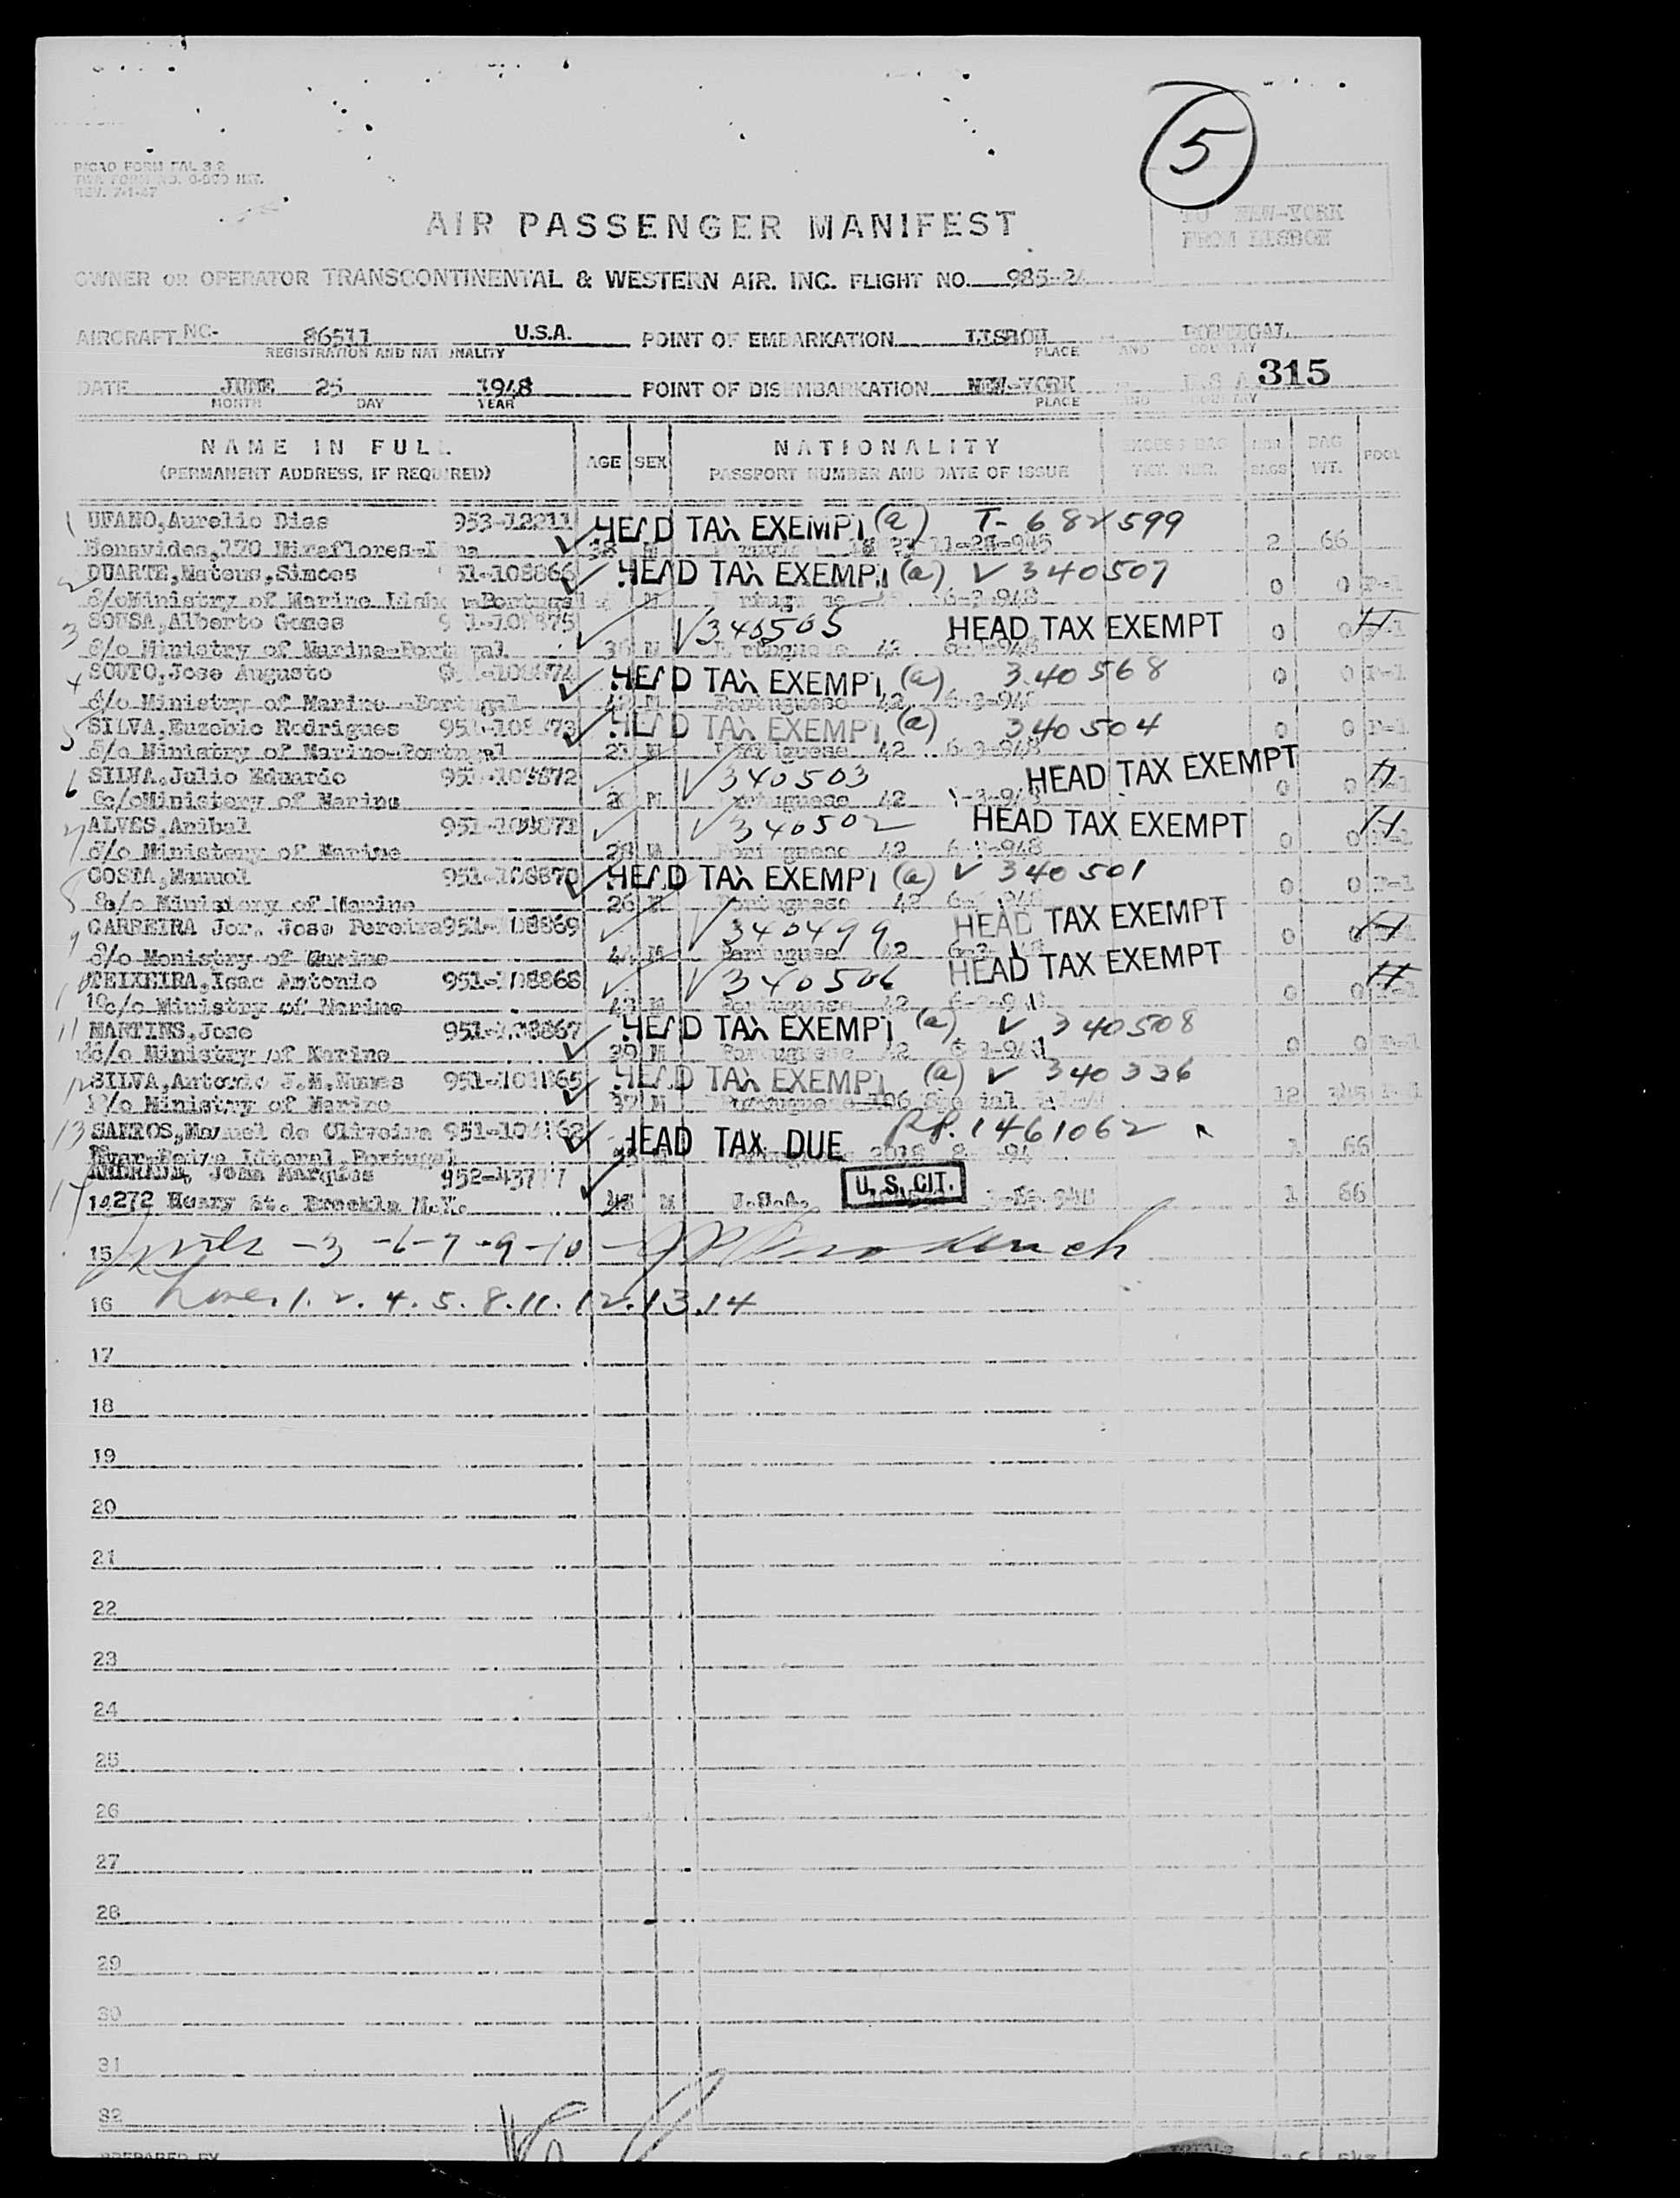 5
PICAO FORM FAL 3.2
REV. 7-1-47
TO NEW-YORK
FROM LISBON
AIR PASSENGER MANIFEST
OWNER OR OPERATOR TRANSCONTINENTAL & WESTERN AIR. INC. FLIGHT NO. 985-24
AIRCRAFT NC- 86511 U.S.A. POINT OF EMBARKATION LISBON PORTUGAL
REGISTRATION AND NATIONALITY PLACE AND COUNTRY
315
DATE JUNE 25 1948 POINT OF DISEMBARKATION NEW-YORK U.S.A
MONTH DAY YEAR PLACE AND COUNTRY
NAME IN FULL AGE SEX NATIONALITY EXCESS BAG NBR. BAG POOL
(PERMANENT ADDRESS, IF REQUIRED) PASSPORT NUMBER AND DATE OF ISSUE TKT. NBR. BAGS WT.
1 UFANO,Aurelio Dias 953-12211 HEAD TAX EXEMPT (a) T- 682599
Benavides,170 Miraflores-Lima 38 M 11-28-945 2 66
2 DUARTE,Mateus,Simoes 51-108866 HEAD TAX EXEMPT (a) V 340507
c/oMinistry of Marine Lisbo Portugal M 6-3-948 0 0 P-1
3 SOUSA,Alberto Gomes V 340505 HEAD TAX EXEMPT 0 0 H
c/o Ministry of Marine-Portugal 36 M Portuguese 42
4 SOUTO,Jose Augusto HEAD TAX EXEMPT (a) 340568 0 0 P-1
c/o Ministry of Marine -Portugal 42 M Portuguese 42 6-3-948
5 SILVA,Euzebio Rodrigues HEAD TAX EXEMPT (a) 340504 0 0 P-1
c/o Ministry of Marine-Portugal M Portuguese 42 6-3-948
6 SILVA,Julio Eduardo 951-108872 V 340503 HEAD TAX EXEMPT 0 0 H
c/oMinistery of Marine M Portuguese 42
7 ALVES,Anibal 951-108871 V 340502 HEAD TAX EXEMPT H
c/o Ministery of Marine 28 M Portuguese 42 6-3-948 0 0
8 COSTA,Manuel 951-108870 HEAD TAX EXEMPT (a) V 340501
c/o Ministery of Marine 26 M Portuguese 42 0 0 P-1
9 CARREIRA Jor. Jose Pereira 951-108869 V 340499 HEAD TAX EXEMPT H
c/o Monistry of Marine 44 M Portuguese 42 0 0
10 TEIXEIRA,Isac Antonio 951-108868 V 340506 HEAD TAX EXEMPT H
c/o Ministry of Marine 43 M Portuguese 42 0 0
11 MARTINS,Jose 951-108867 HEAD TAX EXEMPT (a) V 340508
c/o Ministry of Marine 29 M Portuguese 42 0 0 P-1
12 SILVA,Antonio J.M.Nunes HEAD TAX EXEMPT (a) V 340336
c/o Ministry of Marine 37 M Portuguese 106 Special 12
13 SANTOS,Manuel de Oliveira HEAD TAX DUE RP. 1461062
Portugal M 1 66
ANDRADE, Marques 952- U.S. CIT.
14 272 Henry St. Brooklin N.Y. 45 M U.S.A. 1 66
15 -3 -6-7-9-10
16 Lines 1. 2. 4. 5. 8. 11. 12. 13. 14
17
18
19
20
21
22
23
24
25
26
27
28
29
30
31
32
PREPARED BY TOTALS